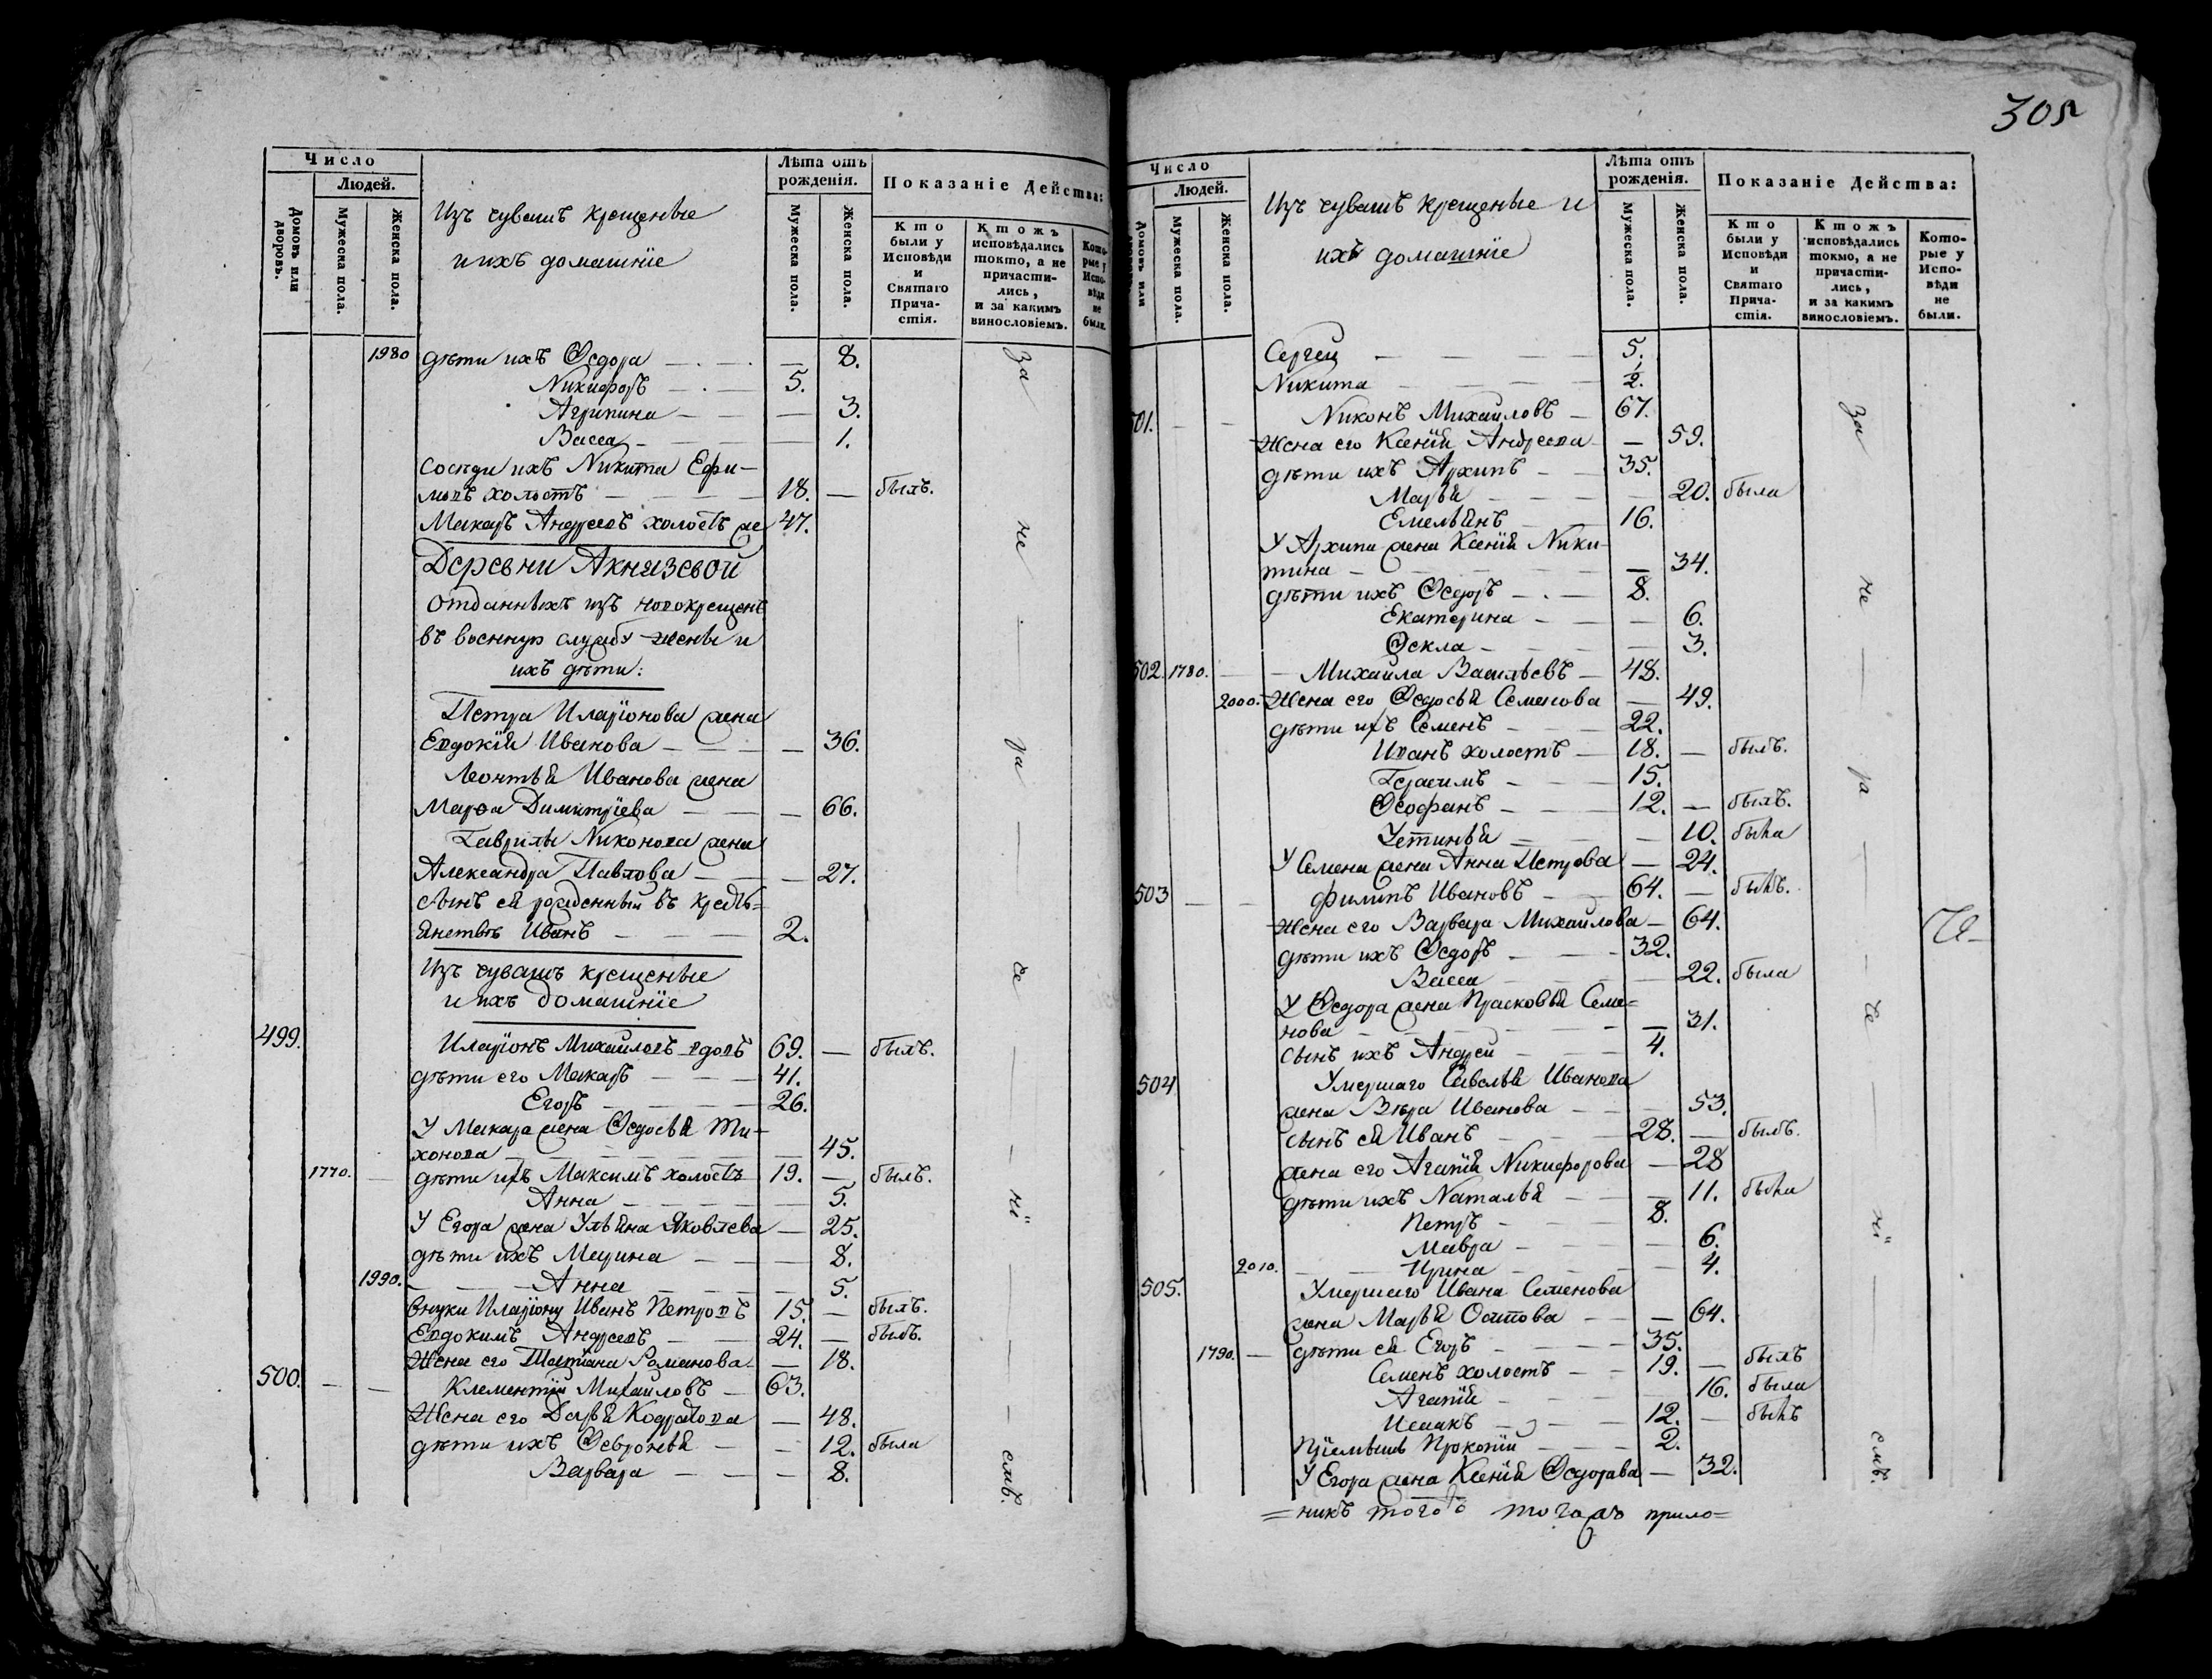 Число
Людей.
Домовъ или дворовъ.
Мужеска пола.
Женска пола.
Изъ чувашъ крещеные
и ихъ домашніе
Лѣта отъ рожденія.
Мужеска пола.
Женска пола.
Показаніе Действа:
Кто были у Исповѣди и Святаго Причастія.
Ктожъ исповѣдались токмо, а не причастились, и за какимъ винословіемъ.
Которые у Исповѣди не были.
1980 дѣти ихъ Ѳедора — — 8.
Никифоръ — 5.
Агрипина — — 3.
Васса — — 1.
Сосѣди ихъ Никита Ефи-
мовъ холостъ — 18. — былъ.
Макаръ Андреевъ холостъ же 47.
Деревни Акнязевой
Отданныхъ изъ новокрещенъ
въ военную службу жены и
ихъ дѣти:
Петра Иларіонова жена
Евдокія Иванова — — 36.
Леонтья Иванова жена
Марѳа Димитріева — — 66.
Гаврилы Никонова жена
Александра Павлова — — 27.
сынъ ея рожденный въ кресть=
янствѣ Иванъ — 2.
Изъ чувашъ крещеные
и ихъ домашніе
499. Иларіонъ Михайловъ вдовъ 69. — былъ.
дѣти его Макаръ — 41.
Егоръ — 26.
У Макара жена Ѳедосья Ти-
хонова — — 45.
1770. — дѣти ихъ Максимъ холостъ 19. — былъ.
Анна — — 5.
У Егора жена Ульяна Яковлева — 25.
дѣти ихъ Марина — — 8.
1990. — Анна — — 5.
внуки Иларіону Иванъ Петровъ 15. — былъ.
Евдокимъ Андреевъ — 24. — былъ.
Жена его Татіана Романова — 18.
500. — — Клементій Михайловъ — 63.
Жена его Дарья Кодратова — 48.
дѣти ихъ Ѳевронья — — 12. была
Варвара — — 8.
за — не — ра — че — ні — емъ.
305
Число
Людей.
Домовъ или
Мужеска пола.
Женска пола.
Изъ чувашъ крещеные и
ихъ домашніе
Лѣта отъ рожденія.
Мужеска пола.
Женска пола.
Показаніе Действа:
Кто были у Исповѣди и Святаго Причастія.
Ктожъ исповѣдались токмо, а не причастились, и за какимъ винословіемъ.
Которые у Исповѣди не были.
Сергей — 5.
Никита — ½.
01. — — Никонъ Михайловъ — 67.
Жена его Ксенія Андреева — 59.
дѣти ихъ Архипъ — 35.
Марья — — 20. была
Емельянъ — 16.
У Архипа жена Ксенія Ники-
тина — — 34.
дѣти ихъ Ѳедоръ — 8.
Екатерина — — 6.
Ѳекла — — 3.
502. 1780. — Михайла Васильевъ — 48.
2000. Жена его Ѳедосья Семенова — 49.
дѣти ихъ Семенъ — 22.
Иванъ холостъ — 18. — былъ.
Герасимъ — 15.
Ѳеофанъ — 12. — былъ.
Устинья — — 10. была
У Семена жена Анна Петрова — 24.
503 — — Филипъ Ивановъ — 64. — былъ.
Жена его Варвара Михайлова — 64.
дѣти ихъ Ѳедоръ — 32.
Васса — — 22. была
У Ѳедора жена Прасковья Семе=
нова — — 31.
сынъ ихъ Андрей — 4.
504 Умершаго Савелья Иванова
жена Вѣра Иванова — — 53.
сынъ ея Иванъ — 28. — былъ.
жена его Агапія Никифорова — 28
дѣти ихъ Наталья — — 11. была
Петръ — 8.
Мавра — — 6.
2010. — Ирина — — 4.
505. Умершаго Ивана Семенова
жена Марья Осипова — — 64.
дѣти ея Егоръ — 35.
1790. — Семенъ холостъ — 19. — былъ
Агапія — — 16. была
Исаакъ — 12. — былъ
Пріемышъ Прокопій — 2.
У Егора жена Ксенія Ѳедорова — 32.
за — не — ра — че — ні — емъ.
=никъ того тогожъ прило=